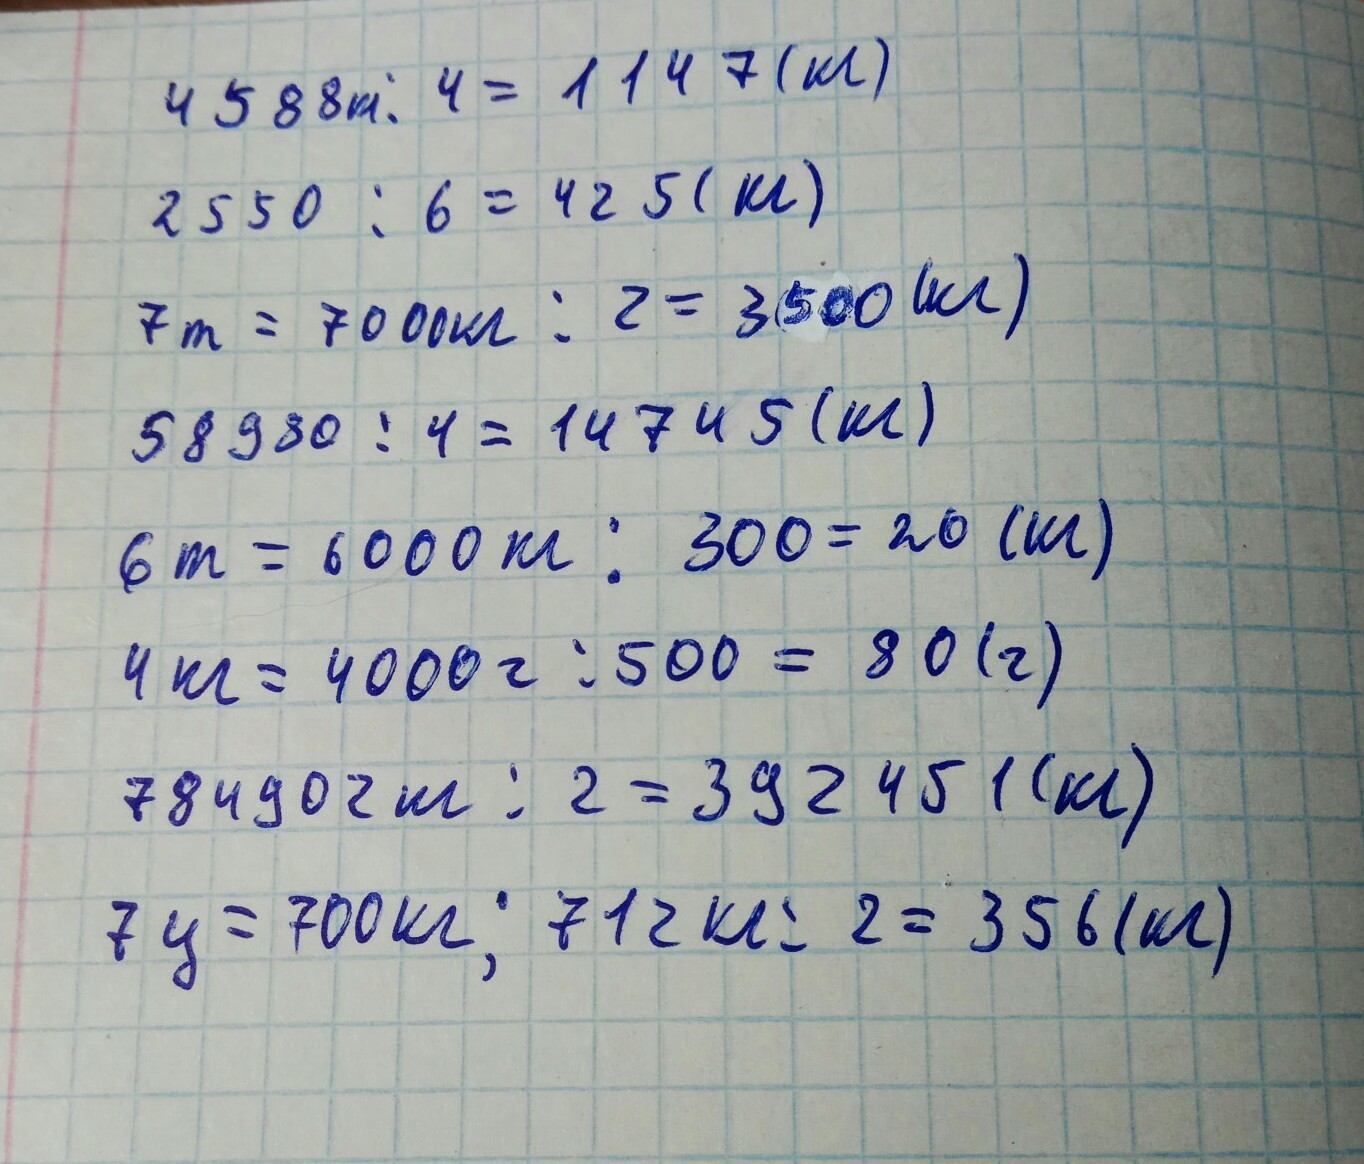 4588т : 4 = 1147 (кг)
2550 : 6 = 425 (кг)
7т = 7000кг : 2 = 3500 (кг)
58980 : 4 = 14745 (кг)
6т = 6000кг : 300 = 20 (кг)
4кг = 4000г : 500 = 80 (г)
784902кг : 2 = 392451 (кг)
7ц = 700кг; 712кг : 2 = 356 (кг)